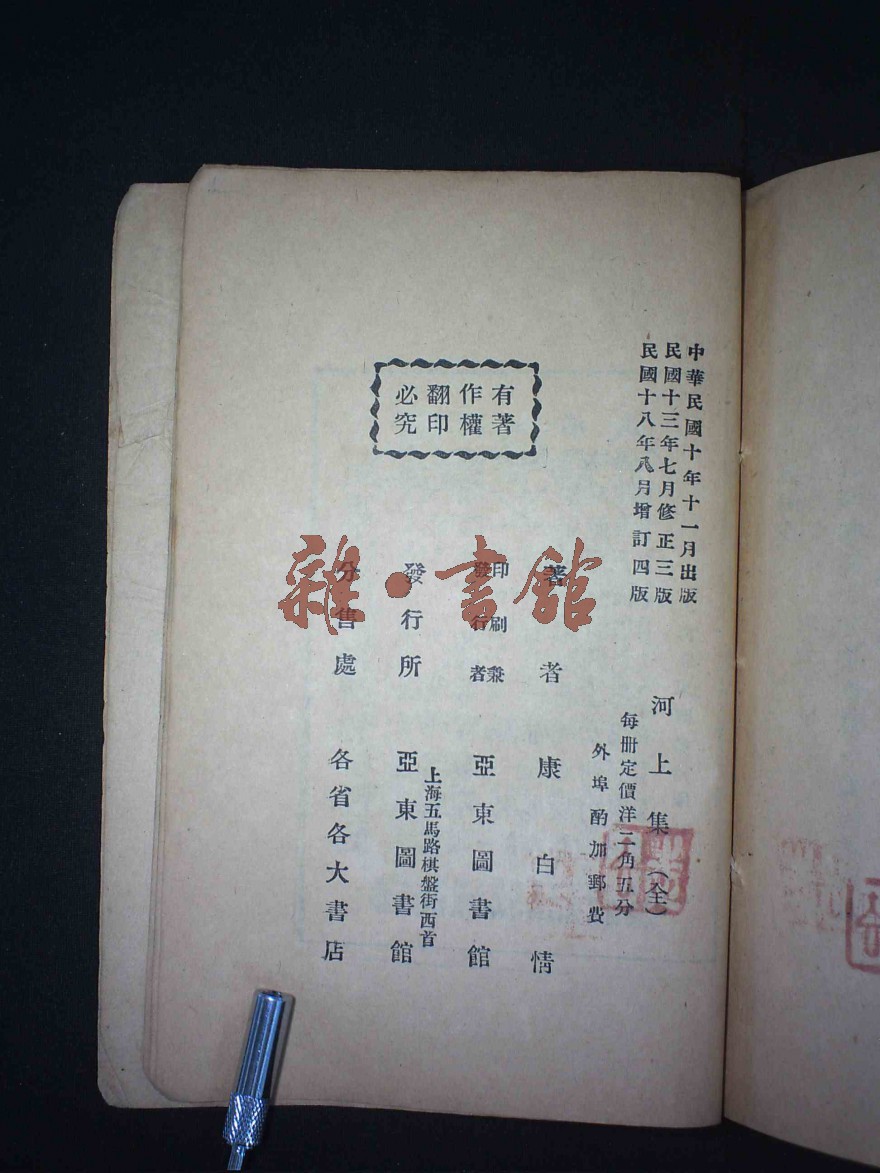 中華民國十年十一月出版
民國十三年七月修正三版
民國十八年八月增訂四版
河上集（全）
每冊定價洋二角五分
外埠酌加郵費
有著
作權
翻印
必究
著者 康白情
印刷兼
發行者 亞東圖書館
上海五馬路棋盤街西首
發行所 亞東圖書館
分售處 各省各大書店
雜·書館